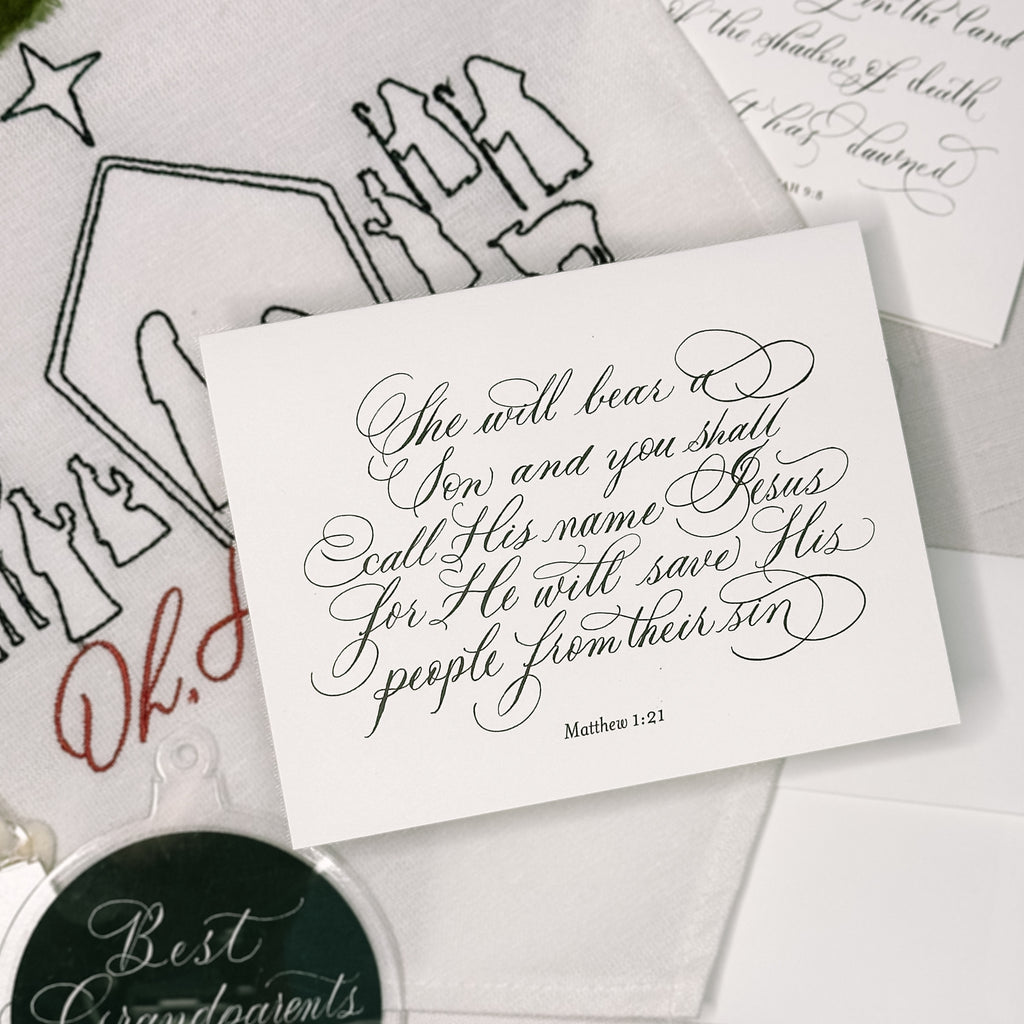 in the land
the shadow of death
has dawned
9:8
She will bear a
Son and you shall
call His name Jesus
for He will save His
people from their sin
Matthew 1:21
Oh,
Best
Grandparents